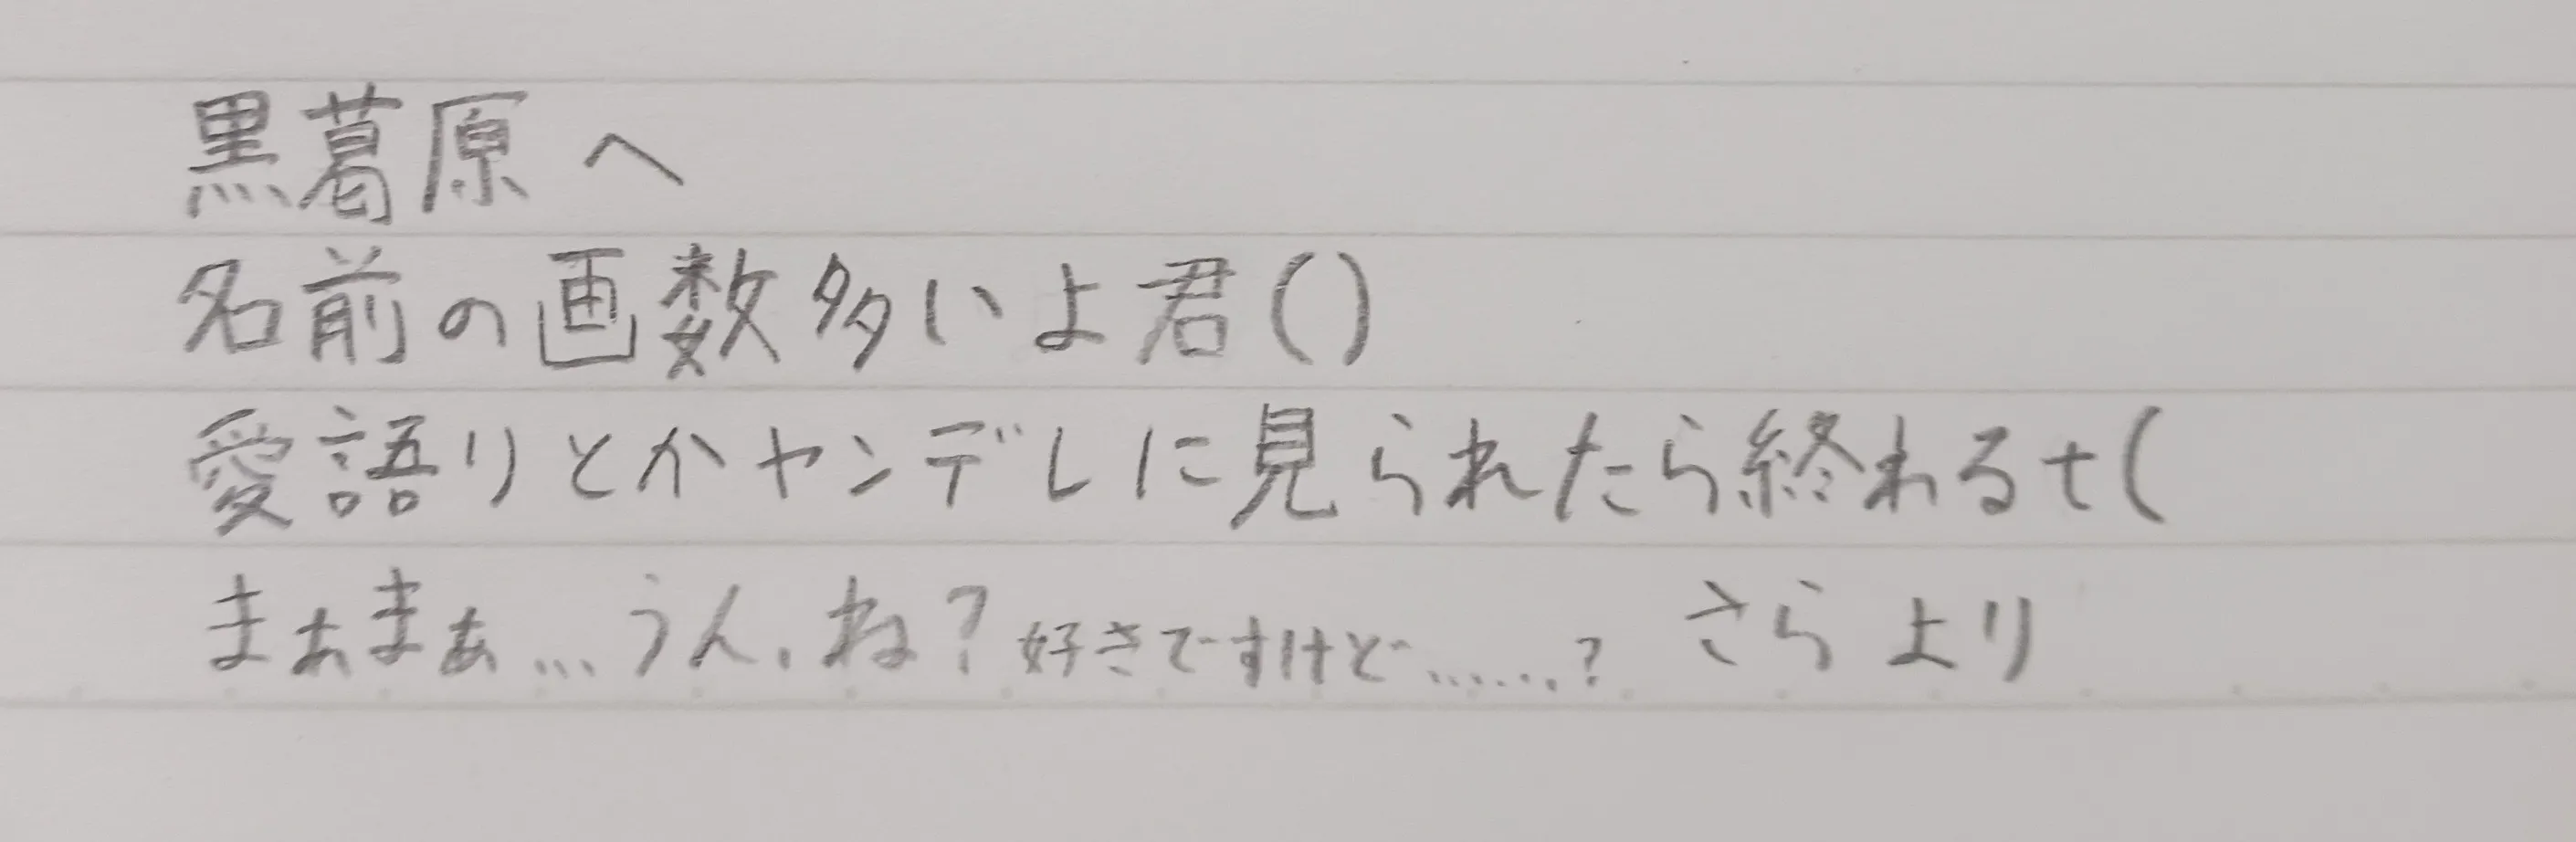 黒葛原へ
名前の画数多いよ君()
愛語りとかヤンデレに見られたら終わるt(
まぁまぁ...うん、ね?好きですけど......? さらより